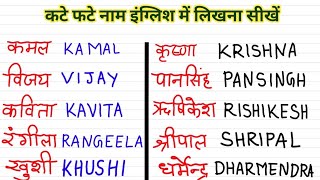 कटे फटे नाम इंग्लिश में लिखना सीखें
कमल KAMAL
विजय VIJAY
कविता KAVITA
रंगीला RANGEELA
खुशी KHUSHI
कृष्णा KRISHNA
पानसिंह PANSINGH
ऋषिकेश RISHIKESH
श्रीपाल SHRIPAL
धर्मेन्द्र DHARMENDRA